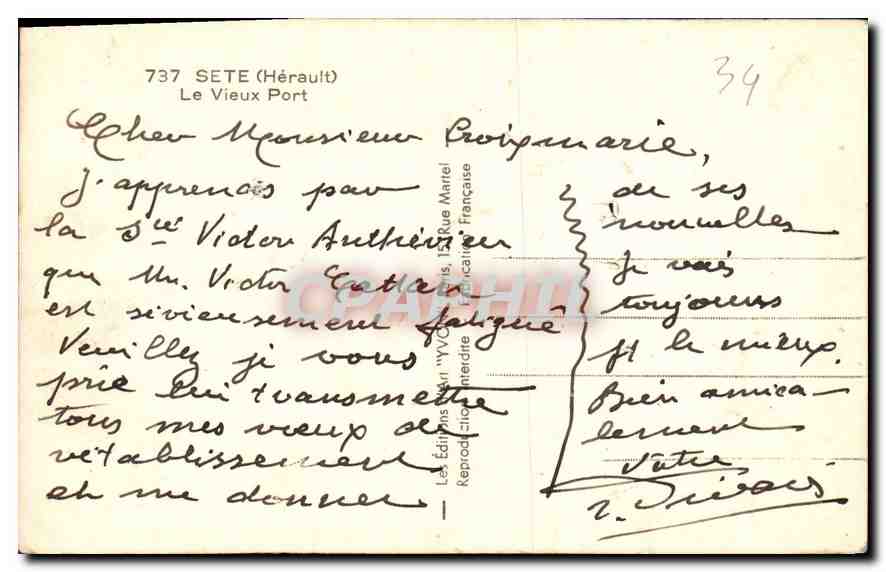 737 SETE (Hérault)
Le Vieux Port
34
Cher Monsieur Croixmarie,
J'apprends par
la Sté Victor Authévien
que Mr. Victor
est sérieusement fatigué
Veuillez je vous
prie lui transmettre
tous mes vœux de
rétablissement
et me donner
de ses
nouvelles
Je vais
toujours
pr le mieux.
Bien amica-
lement
Votre
Les Éditions d'Art "YVON" Paris, 15, Rue Martel
Reproduction Interdite Fabrication Française
CPAPHIL